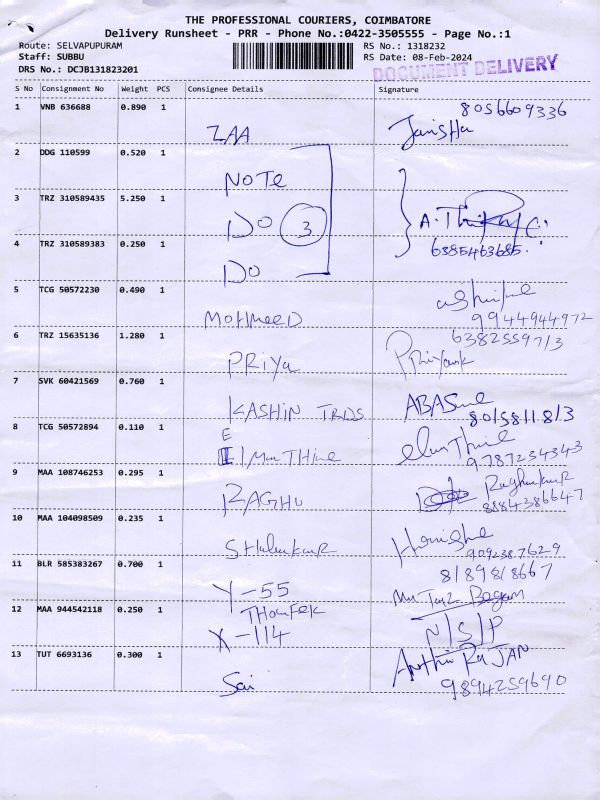 THE PROFESSIONAL COURIERS, COIMBATORE
Delivery Runsheet - PRR - Phone No.:0422-3505555 - Page No.:1
Route: SELVAPUPURAM RS No.: 1318232
Staff: SUBBU RS Date: 08-Feb-2024
DRS No.: DCJB131823201 DOCUMENT DELIVERY
S No Consignment No Weight PCS Consignee Details Signature
1 VNB 636688 0.890 1 8056609336
ZAA
2 DDG 110599 0.520 1
NOTE
3 TRZ 310589435 5.250 1
DO 3 A.
4 TRZ 310589383 0.250 1 6385463685
DO
5 TCG 50572230 0.490 1
MOHMEED 9944944972
6 TRZ 15635136 1.280 1 6382559713
PRiYa
7 SVK 60421569 0.760 1
KASHIN TRDS 8015811813
8 TCG 50572894 0.110 1
E 9787234343
9 MAA 108746253 0.295 1
RAGHU 8884386647
10 MAA 104098509 0.235 1
9092387629
11 BLR 585383267 0.700 1 8189818667
Y-55
12 MAA 944542118 0.250 1
X-114 N/S/P
13 TUT 6693136 0.300 1
Sai 9894259690